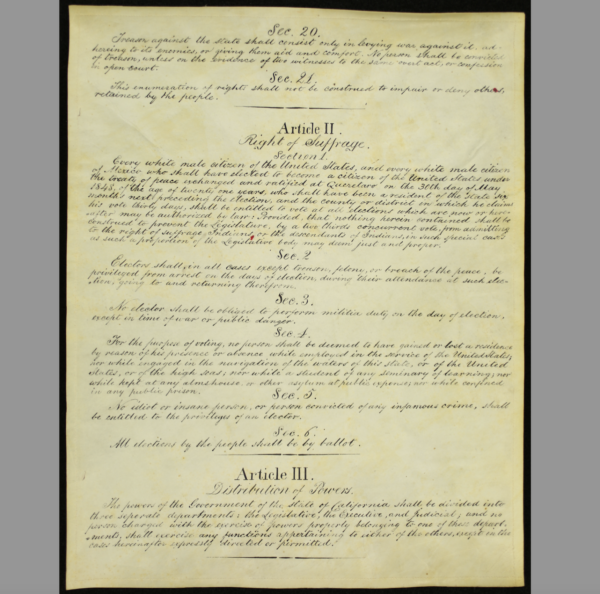 Sec. 20.
Treason against the state shall consist only in levying war against it, ad-
hering to its enemies, or giving them aid and comfort. No person shall be convicted
of treason, unless on the evidence of two witnesses to the same overt act, or confession
in open court.
Sec. 21.
This enumeration of rights shall not be construed to impair or deny others,
retained by the people.
Article II.
Right of Suffrage.
Section 1
Every white male citizen of the United States, and every white male citizen
of Mexico who shall have elected to become a citizen of the United States under
the treaty of peace exchanged and ratified at Queretaro on the 30th day of May
1848, of the age of twenty one years, who shall have been a resident of the State six
months next preceding the election, and the county or district in which he claims
his vote thirty days, shall be entitled to vote at all elections which are now or here-
after may be authorized by law: Provided, that nothing herein contained shall be
construed to prevent the Legislature, by a two thirds concurrent vote, from admitting
to the right of suffrage, Indians or the descendants of Indians, in such special cases
as such a proportion of the Legislative body may deem just and proper.
Sec. 2
Electors shall, in all cases except treason, felony, or breach of the peace, be
privileged from arrest on the days of election, during their attendance at such elec-
tion, going to and returning therefrom.
Sec. 3.
No elector shall be obliged to perform militia duty on the day of election,
except in time of war or public danger.
Sec. 4.
For the purpose of voting, no person shall be deemed to have gained or lost a residence
by reason of his presence or absence while employed in the service of the United States;
nor while engaged in the navigation of the waters of this State, or of the United
States, or of the high seas; nor while a student of any seminary of learning; nor
while kept at any almshouse, or other asylum at public expense; nor while confined
in any public prison.
Sec. 5.
No idiot or insane person, or person convicted of any infamous crime, shall
be entitled to the privileges of an elector.
Sec. 6.
All elections by the people shall be by ballot.
Article III.
Distribution of Powers.
The powers of the Government of the State of California shall be divided into
three separate departments; the Legislative, the Executive, and Judicial; and no
person charged with the exercise of powers properly belonging to one of these depart-
ments, shall exercise any functions appertaining to either of the others, except in the
cases hereinafter expressly directed or permitted.